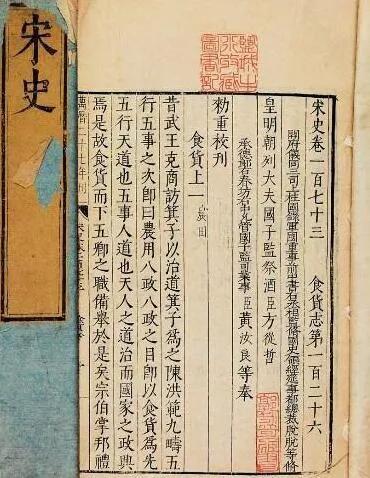 宋史
宋史卷一百七十三　食貨志第一百二十六
開府儀同三司上柱國錄軍國重事前中書右丞相監修國史領經筵事都總裁脫脫等修
皇明朝列大夫國子監祭酒臣方從哲
承德郎右春坊右中允管國子監司業事臣黃汝良等奉
勅重校刊
食貨上一　農田
昔武王克商訪箕子以治道箕子爲之陳洪範九疇五
行五事之次即曰農用八政八政之目即以食貨爲先
五行天道也五事人道也天人之道治而國家之政興
焉是故食貨而下五卿之職備舉於是矣宗伯掌邦禮
萬曆二十七年刊